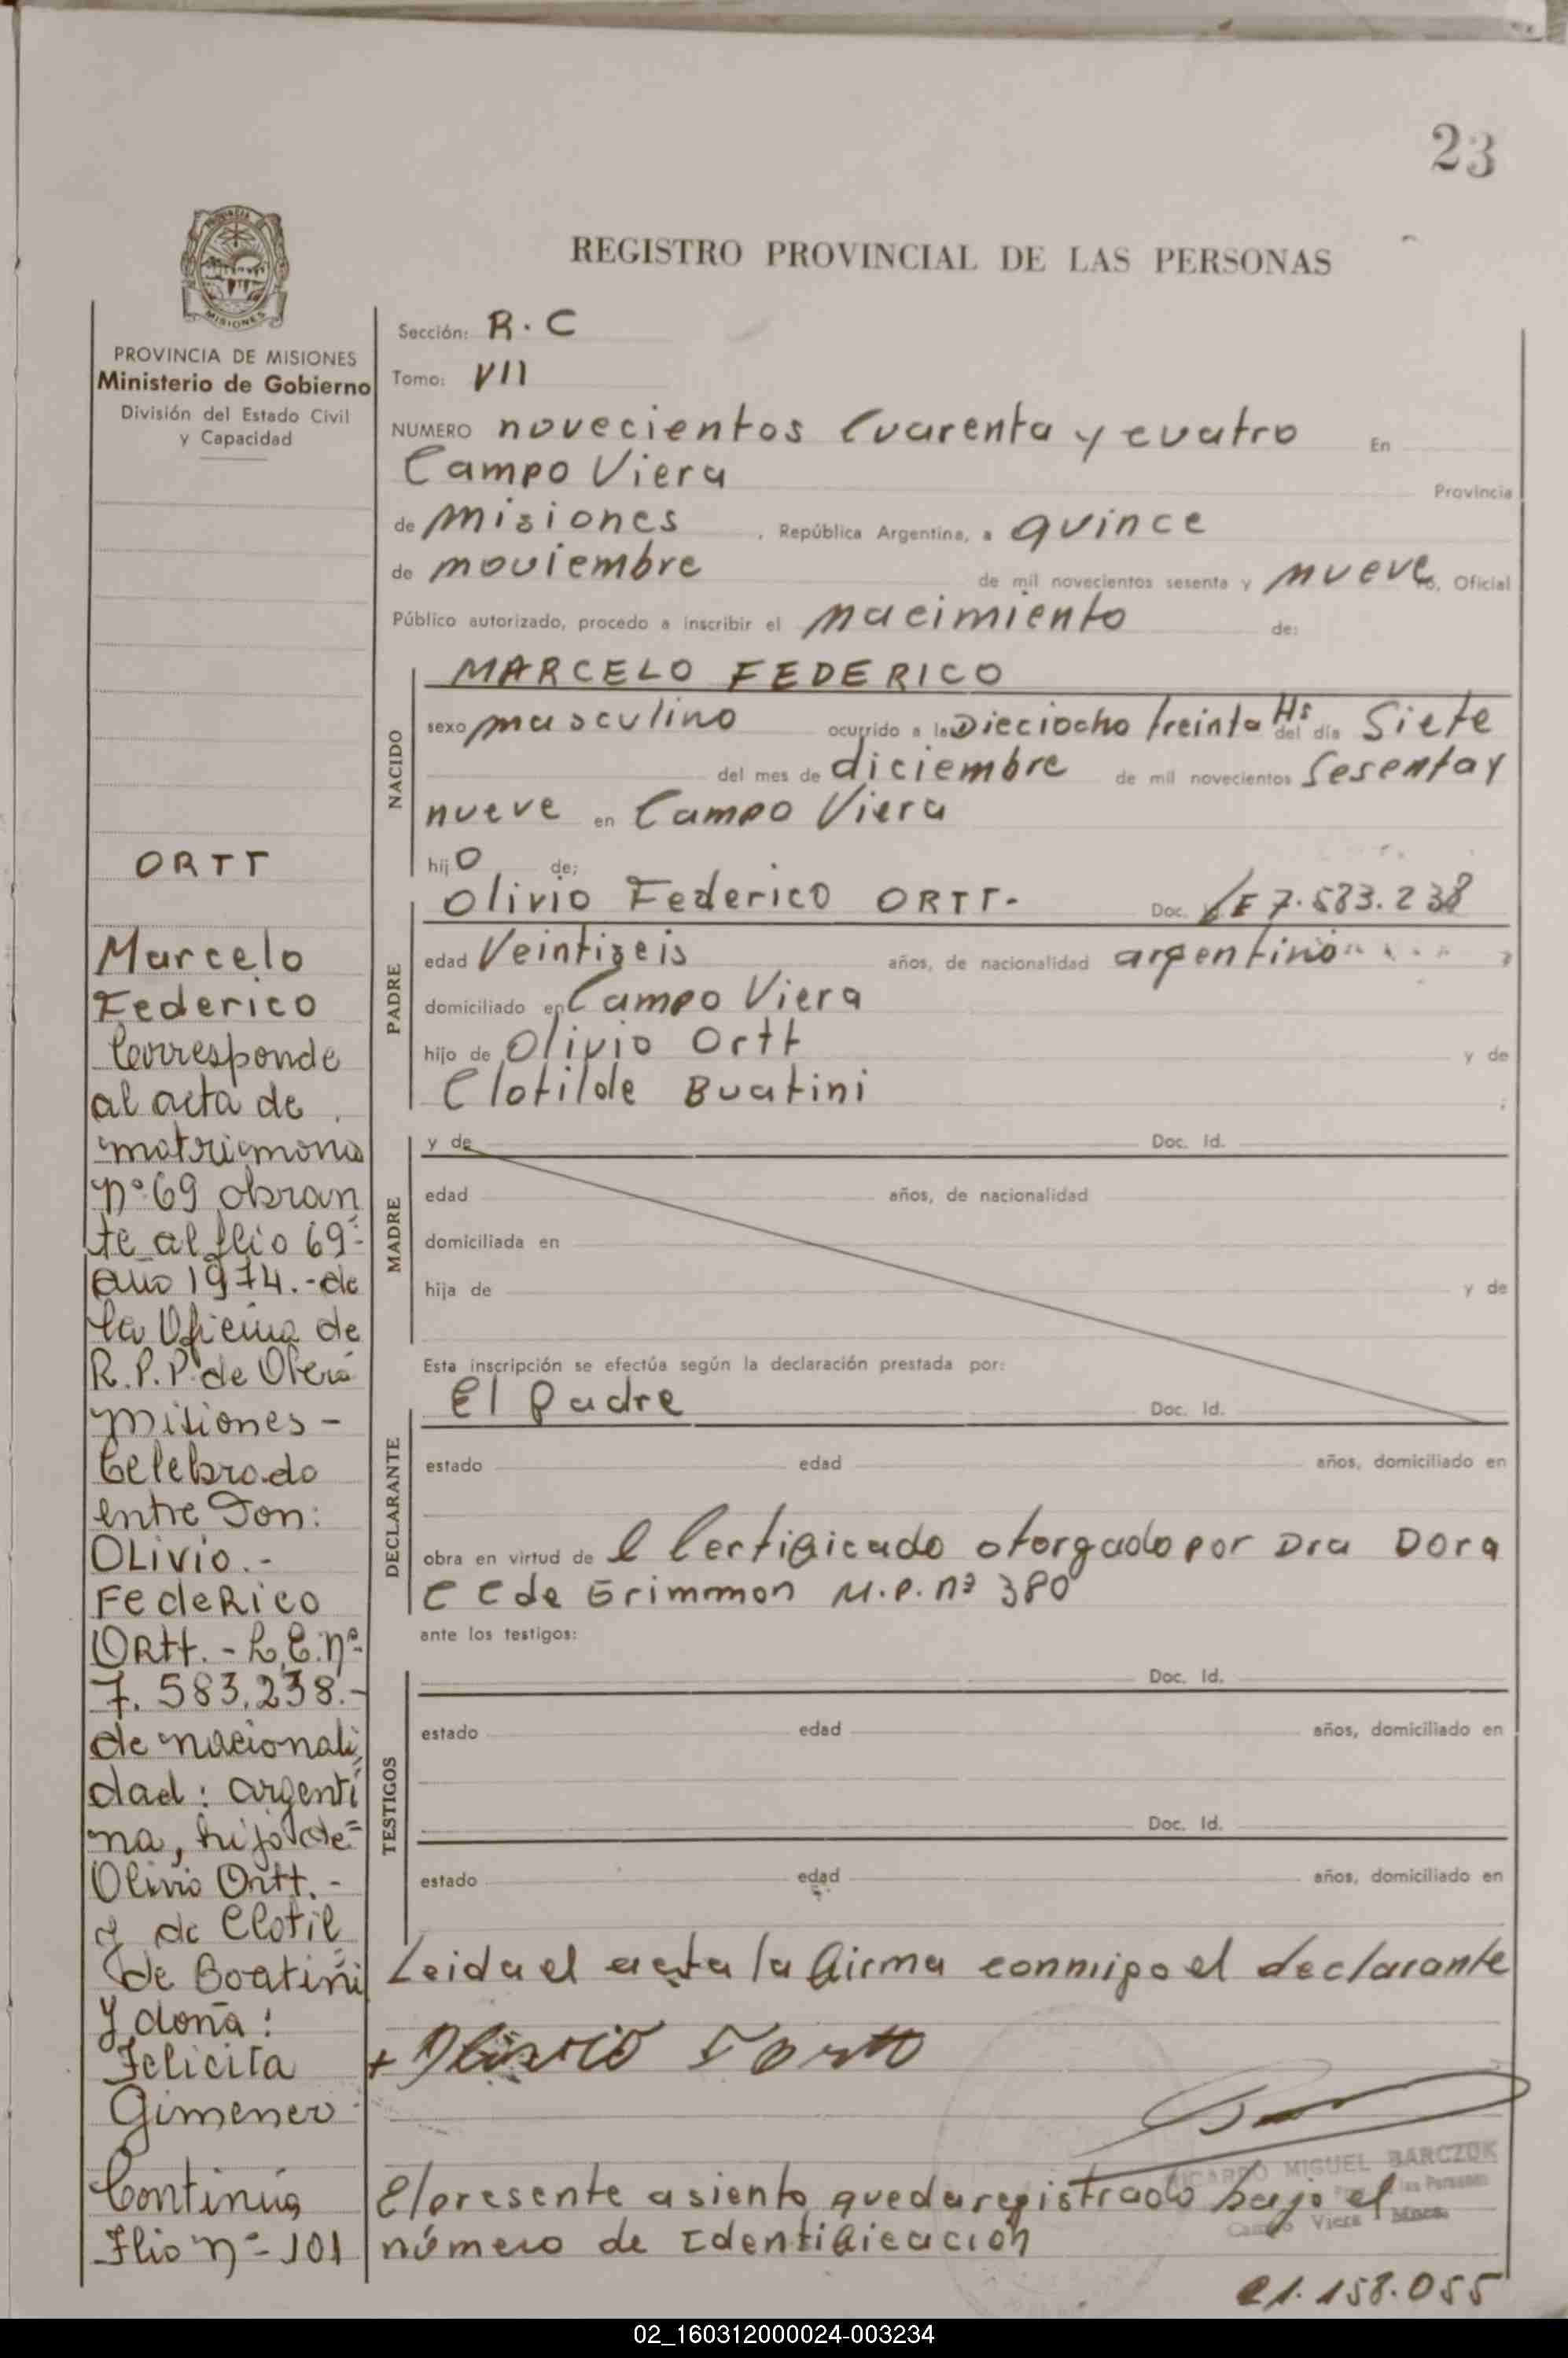 23
REGISTRO PROVINCIAL DE LAS PERSONAS
PROVINCIA DE MISIONES
Ministerio de Gobierno
División del Estado Civil
y Capacidad
ORTT
Marcelo
Federico
Corresponde
al acta de
matrimonio
nº 69 obran
te al flio 69-
año 1974.- de
la Oficina de
R.P.P. de Oberá
Misiones -
Celebrado
entre Don:
OLivio.-
FedeRico
ORtt.- L.E. nº
7.583.238.-
de nacionali
dad: argenti
na, hijo de=
Olivio Ortt.-
y de Clotil
de Boatini
Y doña:
Felicita
Gimenez
Continúa
Flio nº- 101
Sección: R.C
Tomo: VII
NUMERO novecientos Cuarenta y cuatro En
Campo Viera Provincia
de Misiones, República Argentina, a quince
de noviembre de mil novecientos sesenta y nueve, Oficial
Público autorizado, procedo a inscribir el nacimiento de:
NACIDO
MARCELO FEDERICO
sexo masculino ocurrido a la Dieciocho treinta Hs del día Siete
del mes de diciembre de mil novecientos Sesenta y
nueve en Campo Viera
hijo de;
PADRE
Olivio Federico ORTT- Doc. LE 7.583.238
edad Veintiseis años, de nacionalidad argentino
domiciliado en Campo Viera
hijo de Olivio Ortt y de
Clotilde Buatini ;
MADRE
y de Doc. Id.
edad años, de nacionalidad
domiciliada en
hija de y de
Esta inscripción se efectúa según la declaración prestada por:
DECLARANTE
El Padre Doc. Id.
estado edad años, domiciliado en
obra en virtud de l Certificado otorgado por Dra Dora
C C de Grimmon M.P. nº 380
ante los testigos:
TESTIGOS
Doc. Id.
estado edad años, domiciliado en
Doc. Id.
estado edad años, domiciliado en
Leida el acta la firma conmigo el declarante
+ Olivio F Ortt
RICARDO MIGUEL BARCZUK
las Personas
Campo Viera Mnes.
El presente asiento queda registrado bajo el
número de Identificación
21.158.055
02_160312000024-003234